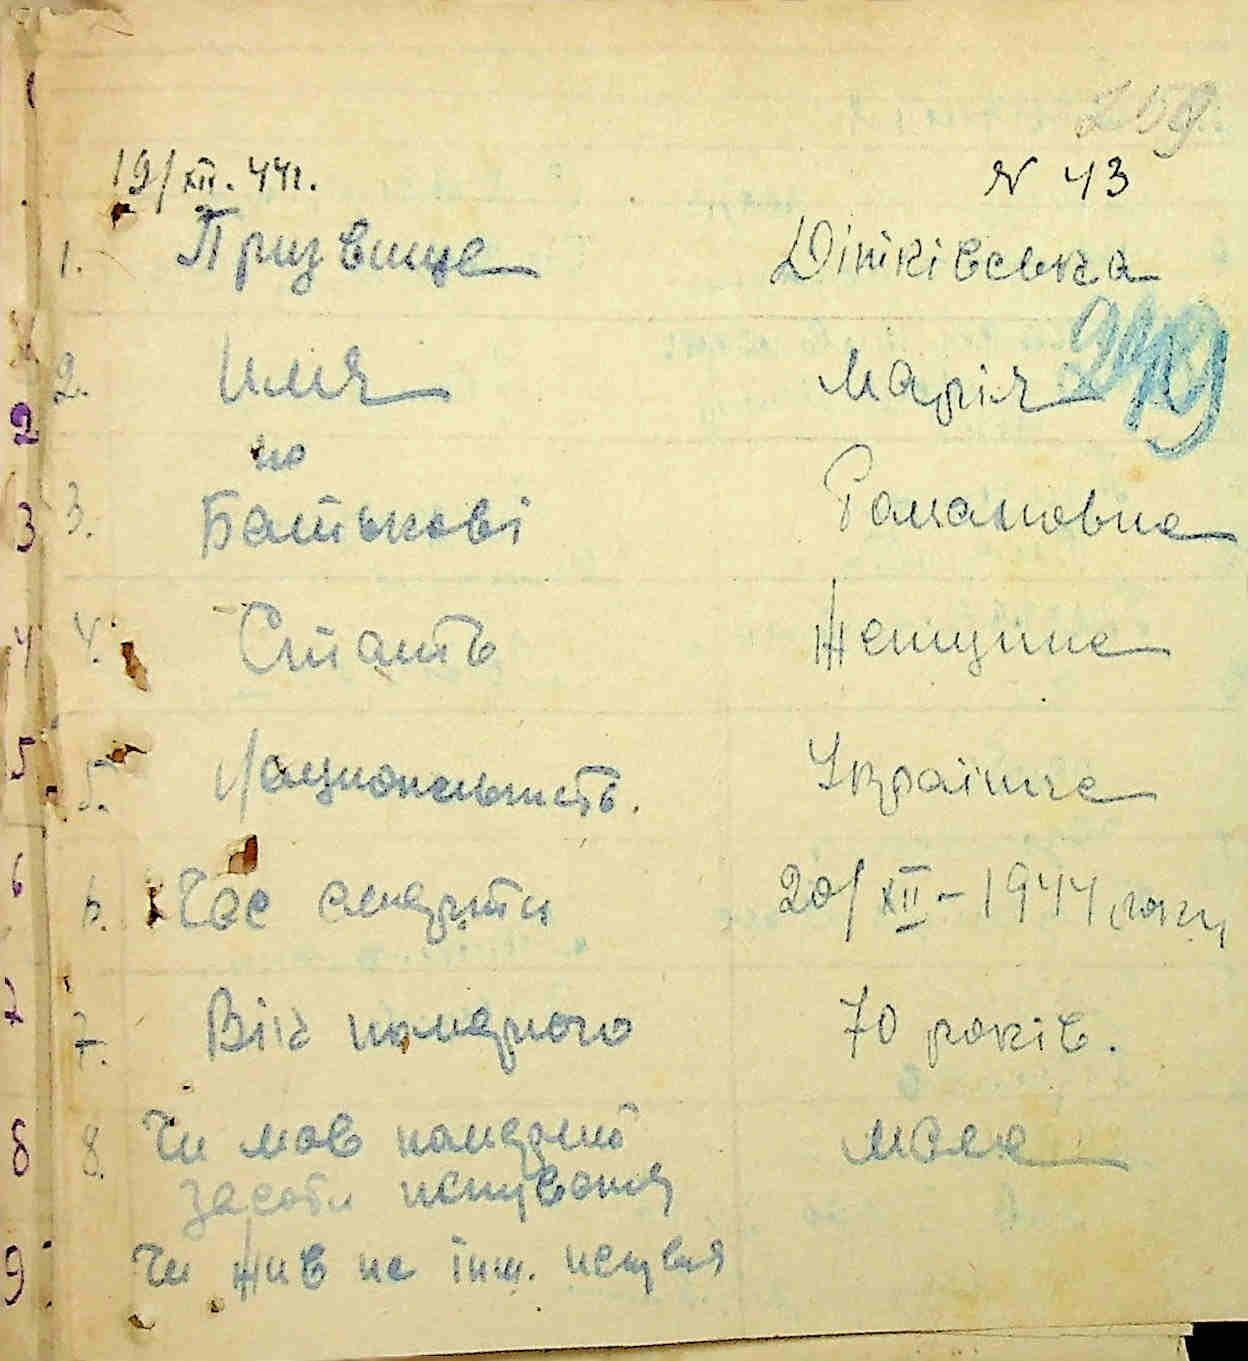 259
19/XII. 44г. N 43
1. Призвище Дітківська
2. Имя Марія
249
по
3. Батькові Романовна
4. Стать Женщина
5. Национальность. Українка
6. Час смерти 20/XII - 1944 року
7. Вік померлого 70 років.
8. Чи мав померлий мала
засоби
Чи жив на інш.
2
3
4
5
6
7
8
9